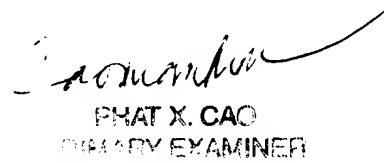 PHAT X. CAO
PRIMARY EXAMINER